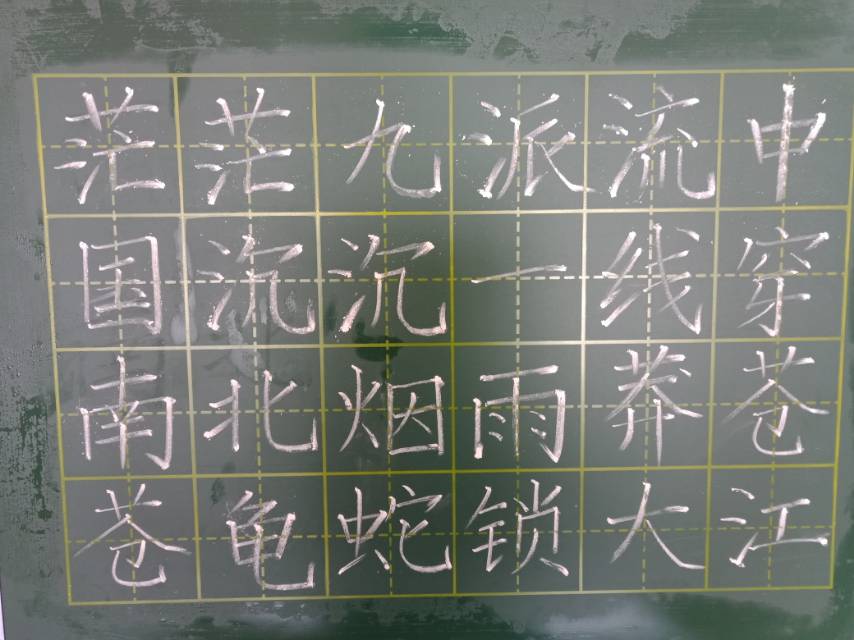 茫茫九派流中
国沉沉一线穿
南北烟雨莽苍
苍龟蛇锁大江